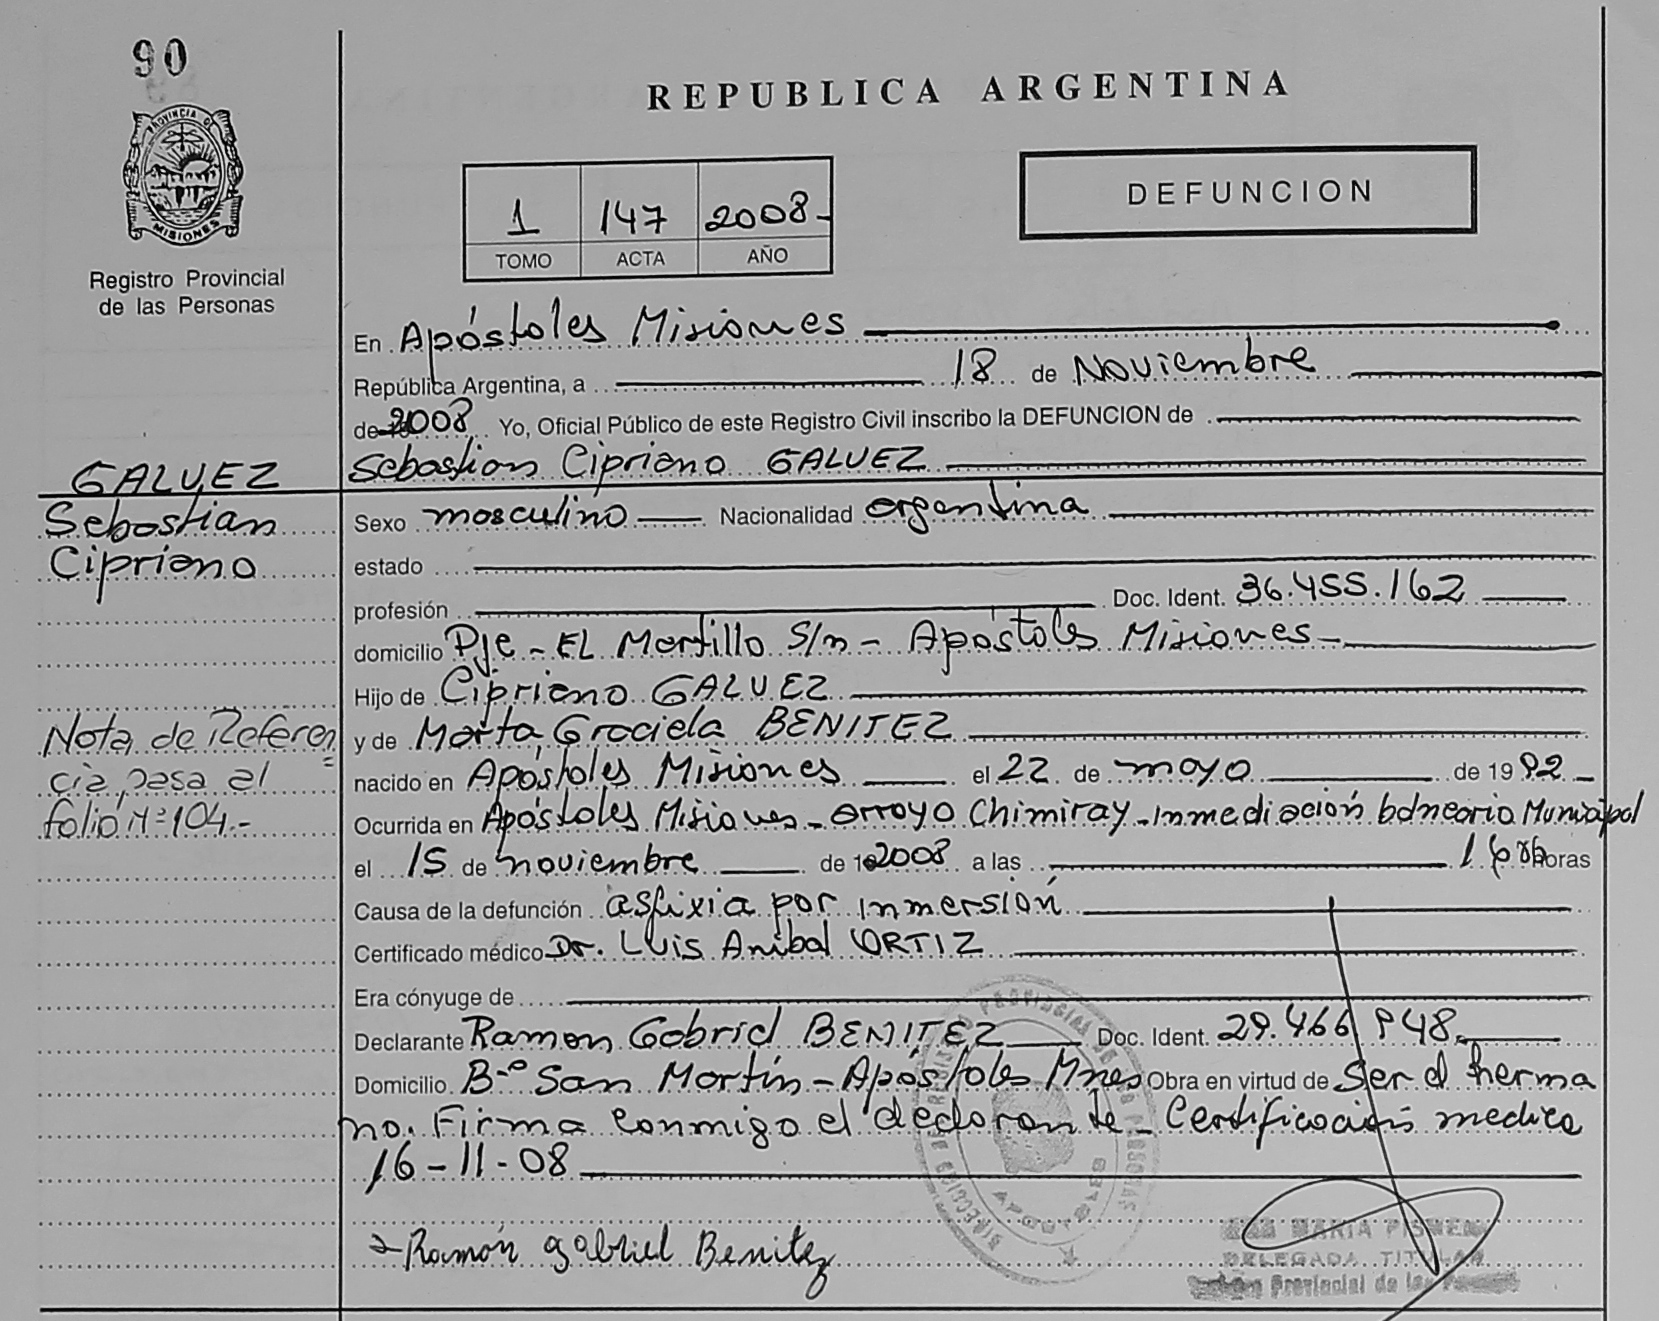 90
REPUBLICA ARGENTINA
PROVINCIA D
MISIONES
Registro Provincial
de las Personas
1 147 2008-
TOMO ACTA AÑO
DEFUNCION
En Apóstoles Misiones
República Argentina, a 18 de Noviembre
de 2008 Yo, Oficial Público de este Registro Civil inscribo la DEFUNCION de
Sebastian Cipriano GALVEZ
GALVEZ
Sebastian
Cipriano
Sexo masculino Nacionalidad argentina
estado
profesión Doc. Ident. 36.455.162
domicilio Pje - EL Martillo S/n - Apóstoles Misiones -
Hijo de Cipriano GALVEZ
y de Marta Graciela BENITEZ
nacido en Apóstoles Misiones el 22 de mayo de 1992
Nota de Referen
cia pasa al
folio Nº 104.-
Ocurrida en Apóstoles Misiones - Arroyo Chimiray - Inmediación balneario Municipal
el 15 de noviembre de 2008 a las horas
Causa de la defunción asfixia por inmersión
Certificado médico Dr. Luis Anibal ORTIZ
Era cónyuge de
Declarante Ramon Gabriel BENITEZ Doc. Ident. 29.466.948
Domicilio B-º San Martín - Apóstoles Mnes Obra en virtud de Ser el herma
no. Firma conmigo el declarante - Certificación medica
16-11-08
Ramón gabriel Benitez
MARIA
DELEGADA TITULAR
Provincial de las
APOSTOLES